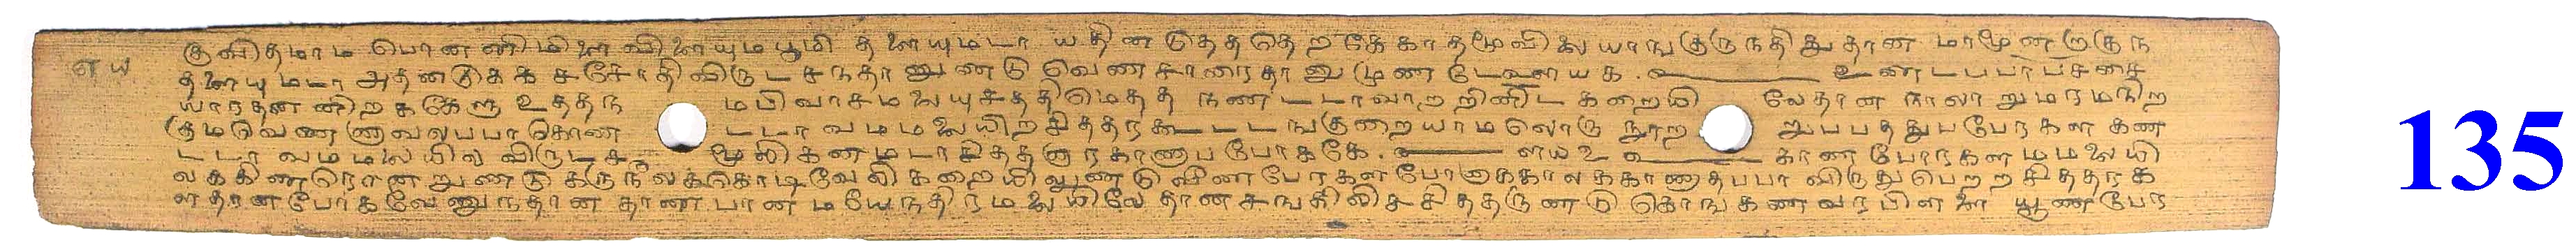 குவிதமாம பொனனிமிளை விளையுமபூமி தளையுமடா யதினடுதததெற கேகாதமூவிலை யாஙகுருநதிதுதான மாமூனறகுந
ளய
தளையுமடா அதனடுகக சசோதிவிருடசநதானுணடு வெணசாரைதானுமுணடே ளயக உணடபபாபசசை
யாரதனனிறககேளு உததந மபிவாசமலையுசததிமெதத நணடடாவாறறினிட கறையி லேதான நாலாறுமரமநிற
குமவெணணாவலபபாகொண டடாவமமலையிறசிததரகூடடஙகுறையாமலொரு நூற றுபபததுபபேரகள கண
டடாவமமலையில விருடச மூலிகளமடாசிததனாரகாணுபபோககே ளயஉ காணபோரகளமமலையி
லககிணரொனறுணடு கருநீலககொடிவேலிகறையிலுணடு வீணபேரகளபோனாககாலககாணாதபபா விருதுபெறறசிததரக
ளதானபோகவேணுநதான தாணபானமயேநதிரமலையிலேதானசுஙகிலிசசிததருணடு கொஙகணவரபிளளை யூணபேர
135